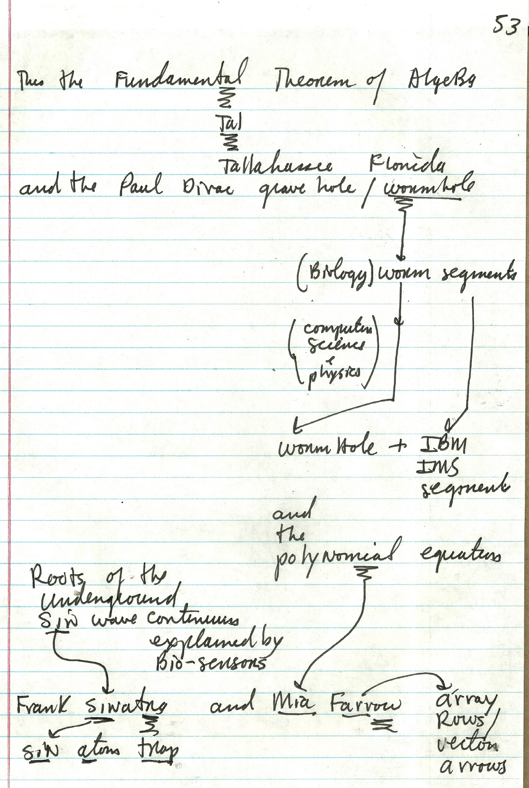 53
Thus the Fundamental Theorem of Algebra
Tal
Tallahassee Florida
and the Paul Dirac grave hole / wormhole
(Biology) worm segments
(computer
science
+
physics)
worm Hole + IBM
IMS
segment
and
the
polyNomial equation
Roots of the
Underground
SiN wave continuus
explained by
Bio-sensors
Frank SiNatra and Mia Farrow array
Rows /
vector
arrows
SiN atom trap